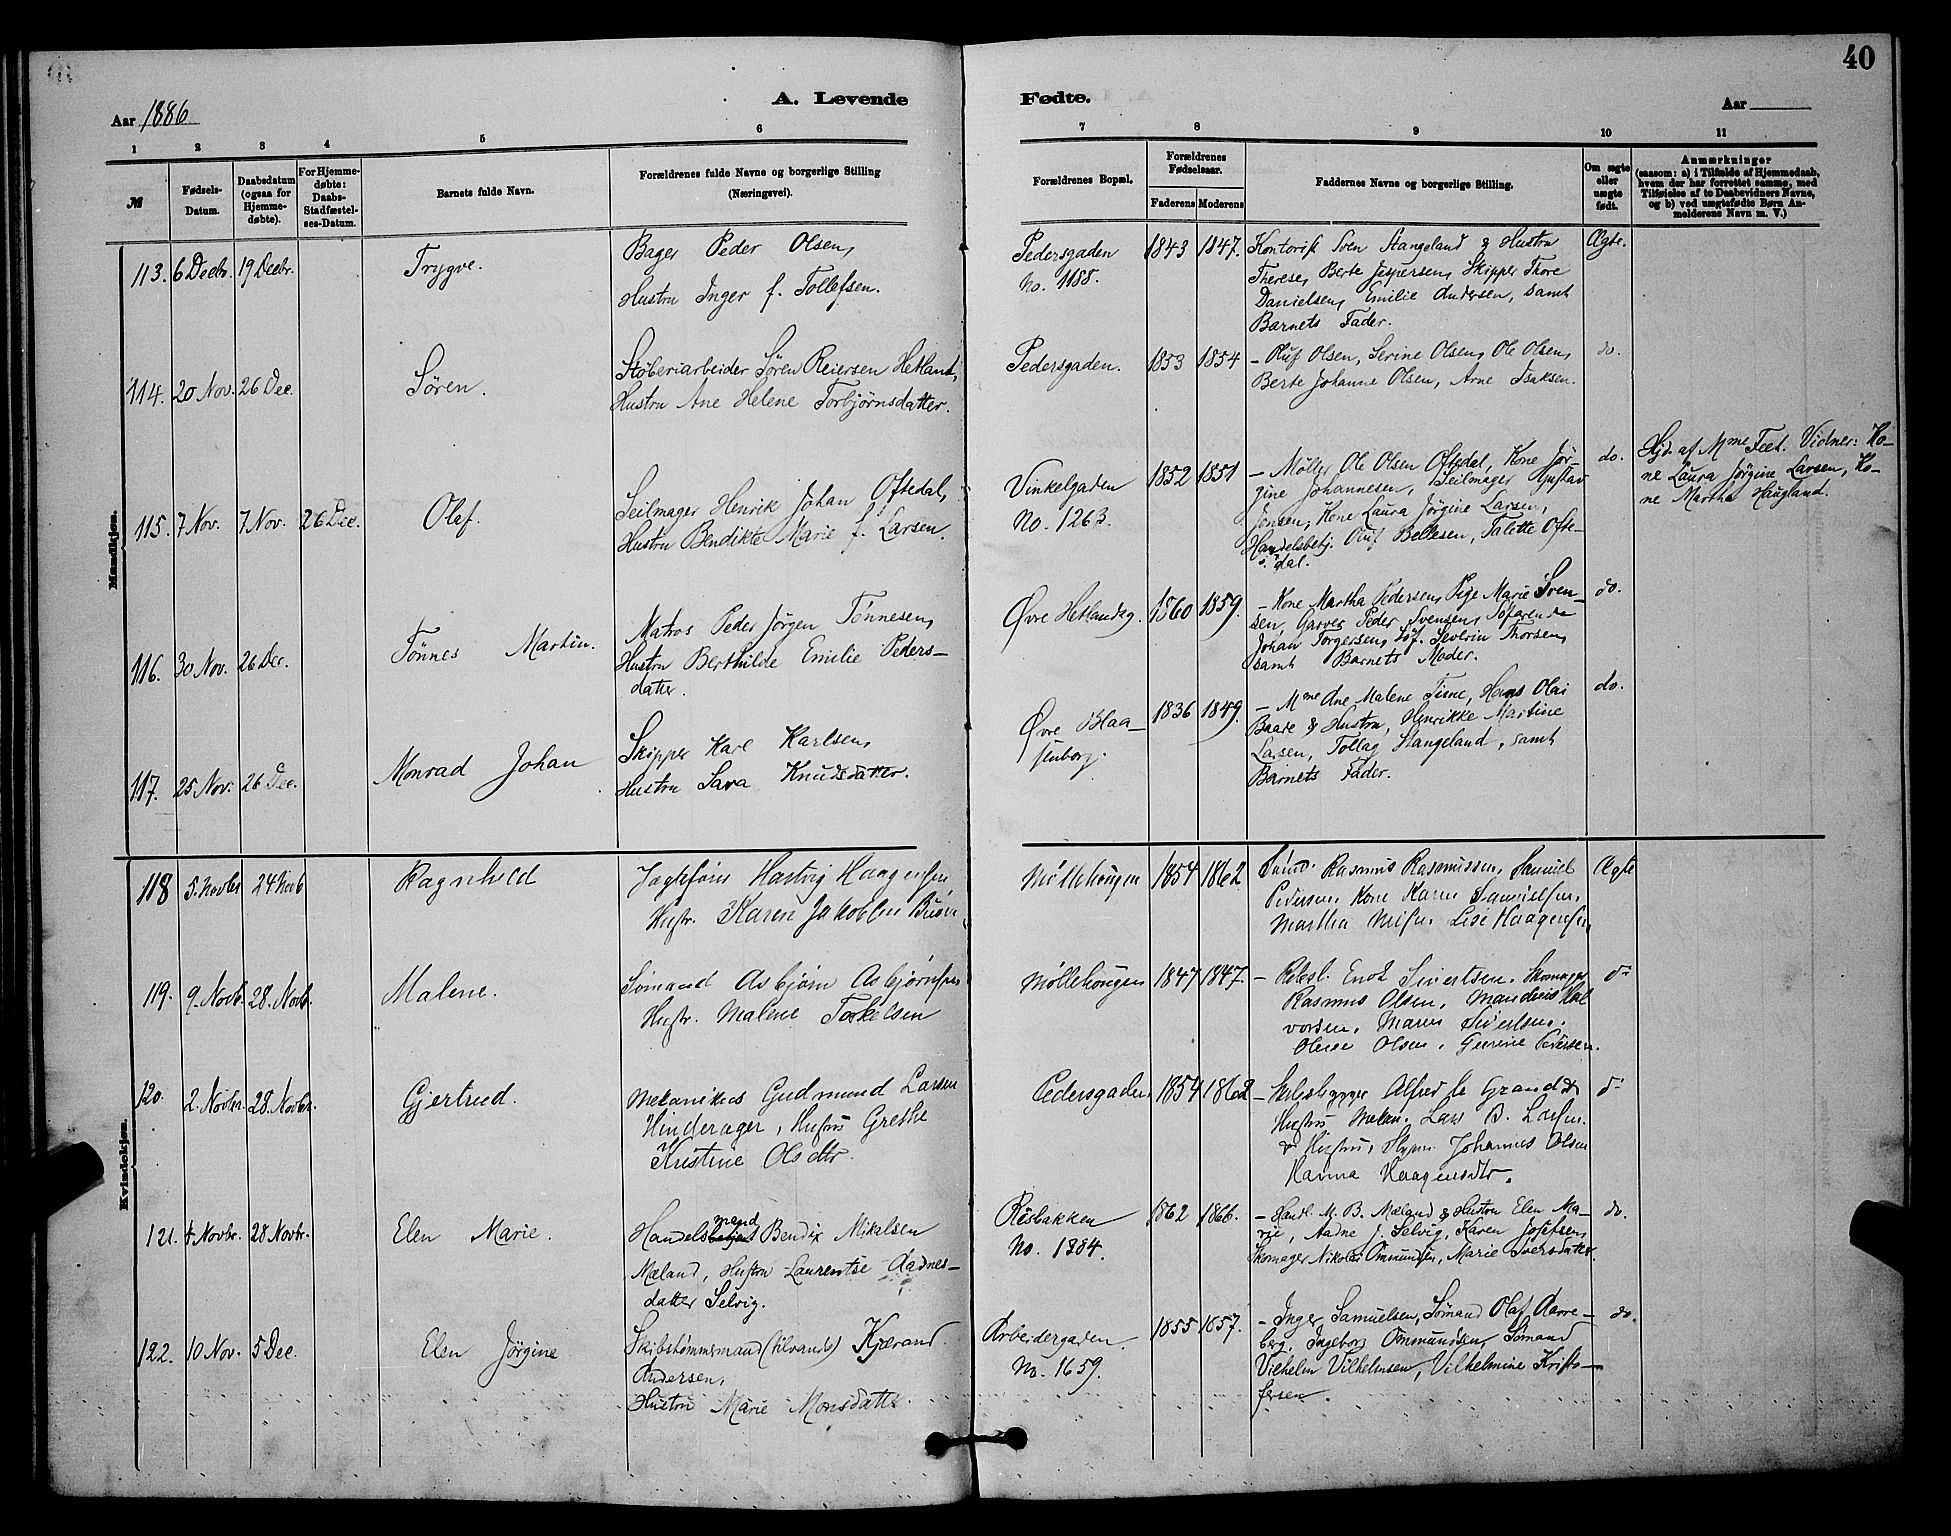 40
Aar 1886
A. Levende
Fødte.
Aar
1 2 3 4 5 6 7 8 9 10 11
№
Fødsels-
Datum.
Daabsdatum
(ogsaa for
Hjemme-
døbte).
For Hjemme-
døbte:
Daabs-
Stadfæstel-
ses-Datum.
Barnets fulde Navn.
Forældrenes fulde Navne og borgerlige Stilling
(Næringsvei).
Forældrenes Bopæl.
Forældrenes
Fødselsaar.
Faderens Moderens
Faddernes Navne og borgerlige Stilling.
Om ægte
eller
uægte
født.
Anmærkninger
(saasom: a) i Tilfælde af Hjemmedaab,
hvem der har forrettet samme, med
Tilføielse af to Daabsvidners Navne,
og b) ved uægtefødte Børn An-
melderens Navn m. V.)
Mandkjøn.
113. 6 Decbr. 19 Decbr.
Trygve.
Bager Peder Olsen,
Hustru Inger f. Tollefsen.
Pedersgaden
No. 1188.
1843 1847.
Kontorist Sven Stangeland & Hustru
Therese, Berte Jespersen, Skipper Thore
Danielsen, Emilie Andersen, samt
Barnets Fader.
Ægte.
114. 20 Nov. 26 Dec.
Søren.
Støberiarbeider Søren Reiersen Hetland,
Hustru Ane Helene Torbjørnsdatter.
Pedersgaden.
1853 1854
- Oluf Olsen, Serine Olsen, Ole Olsen,
Berte Johanne Olsen, Arne Isaksen.
do.
115. 7 Nov. 7 Nov. 26 Dec.
Olaf.
Seilmager Henrik Johan Oftedal,
Hustru Bendikte Marie f. Larsen.
Vinkelgaden
No. 1263.
1852 1851
- Møller Ole Olsen Oftedal, Kone Jør-
gine Johannesen, Seilmager Gustav
Jensen, Kone Laura Jørgine Larsen,
Handelsbetj. Oluf Bellesen, Talette Ofte-
dal.
do.
Hjd. af Mme Feet. Vidner: Ko-
ne Laura Jørgine Larsen, Ko-
ne Martha Haugland.
116. 30 Nov. 26 Dec.
Tønnes Martin.
Matros Peder Jørgen Tønnesen,
Hustru Berthilde Emilie Peders-
datter.
Øvre Hetlandsg.
1860 1859.
- Kone Martha Pedersen, Pige Marie Sven-
sen, Garver Peder Svensen, Søfarende
Johan Torgersen, Søf. Severin Thorsen,
samt Barnets Moder.
do.
117. 25 Nov. 26 Dec.
Monrad Johan
Skipper Karl Karlsen,
Hustru Sara Knudsdatter.
Øvre Blaa-
senborg.
1836 1849.
- Mme Ane Malene Tisne, Hans Olai
Baare & Hustru, Henrikke Martine
Larsen, Tollag Stangeland, samt
Barnets Fader.
do.
Kvindekjøn.
118 5. Novbr 24 Novb
Ragnhild
Jagtefører Hartvig Haagensen
Hustr. Karen Jakobine
Møllehougen
1854 1862
Rasmus Rasmussen, Samuel
Pedersen, Kone Karen Samuelsen,
Martha Lise Haagensen,
Ægte
119. 9. Novb. 28. Novb.
Malene.
Sømand Asbjørn Asbjørnsen
Hustr. Malene Torkelsen
Møllehougen
1847 1847.
- Rebsl. Enok Sivertsen. Skomager
Rasmus Olsen, Hal
vorsen, Maren Sivertsen,
Olsen, Pedersen.
do
120. 2. Novbr. 28. Novbr.
Gjertrud.
Mekanikus Gudmund Larsen
Hinderager, Hustru Grethe
Kristine Olsdtr.
Pedersgaden
1854 1862
- Skibsbygger Alfred le Grand &
Hustru Mekan. Lars B. Larsen
& Hustru, Johannes Olsen
Hanna Haagensdtr.
do
121. 4 Novbr. 28 Novbr.
Elen Marie.
Handelsmand Bendix Mikalsen
Mæland, Hustru Laurentse Aadnes-
datter Selvig.
Risbakken
No. 1384.
1862 1866.
- Handl. M. B. Mæland & Hustru Elen Ma-
rie, Aadne J. Selvig, Karen Josefsen,
Skomager Nikolai Ommundsen, Marie Iversdatter.
do.
122. 10 Nov. 5 Dec.
Elen Jørgine
Skibstømmermand (tilvands) Kjærand
Andersen,
Hustru Marie Monsdatter.
Arbeidergaden
No. 1659.
1855 1857.
- Inger Samuelsen, Sømand Olaf Aarre-
berg, Ingeborg Ommundsen, Sømand
Vilhelm Vilhelmsen, Vilhelmine Kristo-
fersen.
do.